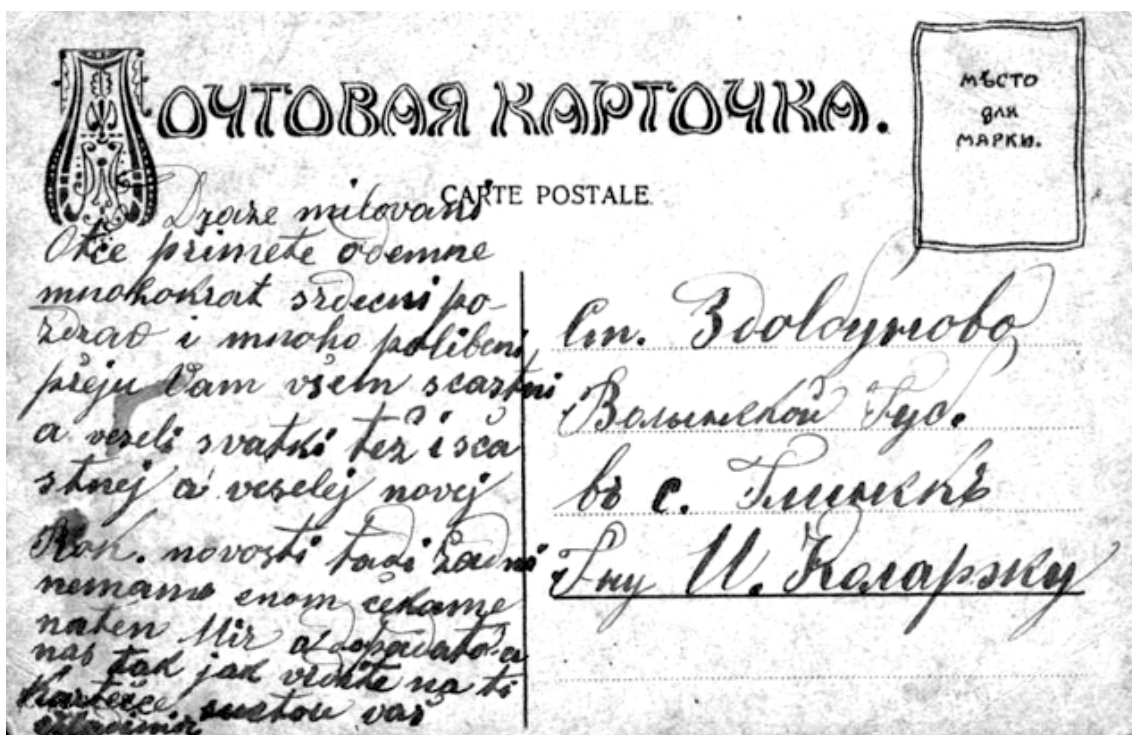 ПОЧТОВАЯ КАРТОЧКА.
МѢСТО
для
МАРКИ.
CARTE POSTALE.
Draze milovani
Otče primete odemne
mnohokrat srdecni po-
zdrav i mnoho polibeni
přeju Vam všem scastni
a veseli svatki też i sča
stnej a veselej novej
Rok. novosti tadi žadni
nemame enom čekame
naten Mir a
nas tak jak vidite na ti
Kartečce vaš
Ст. Здолбуново
Волынской Губ.
въ с. Глинскъ
Гну И. Коларжку